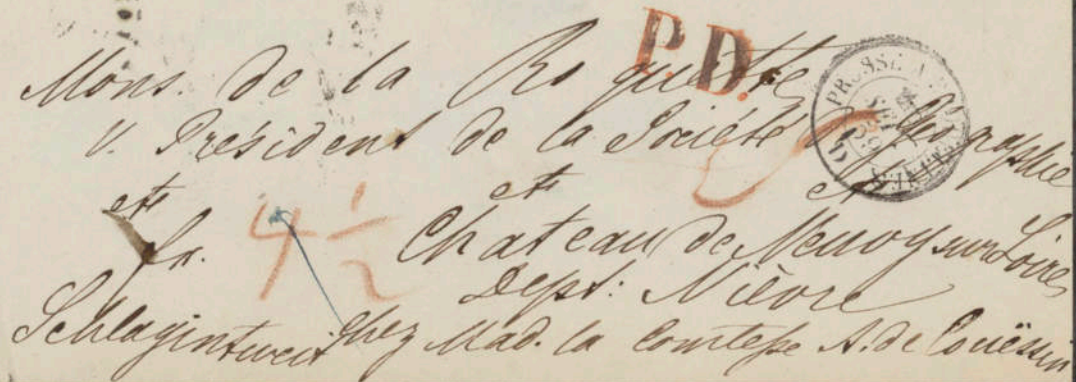 P.D.
Mons. de la Roquette
V. Président de la Société de Géographie
etc etc etc
fr. 4 1/2 Chateau de Menoy sur Loire
Dept: Nièvre
Schlagintweit chez Mad. la Comtesse A. de Couëssin
PRUSSE